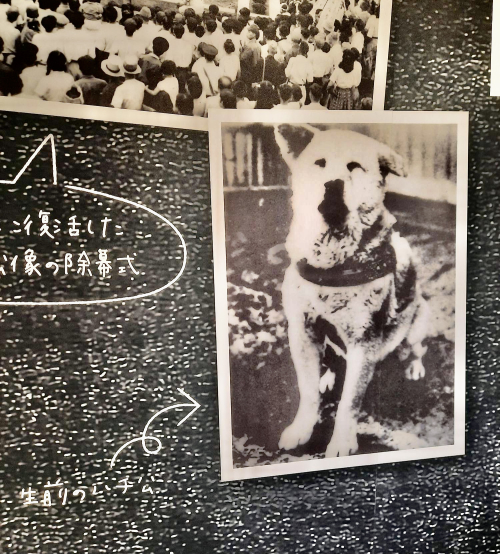 に復活した
公像の除幕式
生前のハチ公